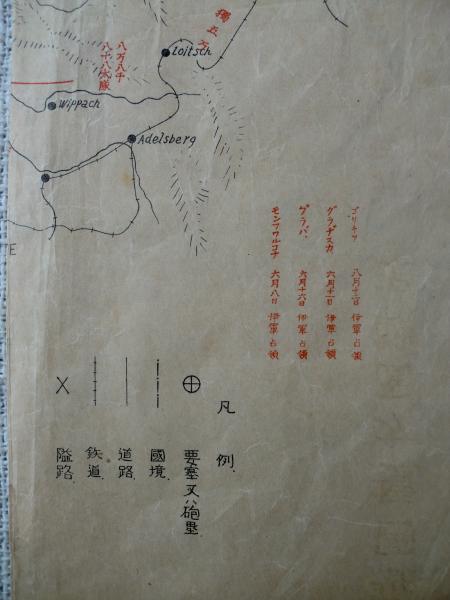 獨五万
Loitsch
八万八千
八十八大隊
Wippach
Adelsberg
E
ゴリチヤ 八月十二日 伊軍占領
グラヂスカ 六月十一日 伊軍占領
グラバ、 六月十六日 伊軍占領
モンフワルコチ 六月八日 伊軍占領
凡例、
要塞又ハ砲塁、
國境、
道路、
鉄道、
隘路、